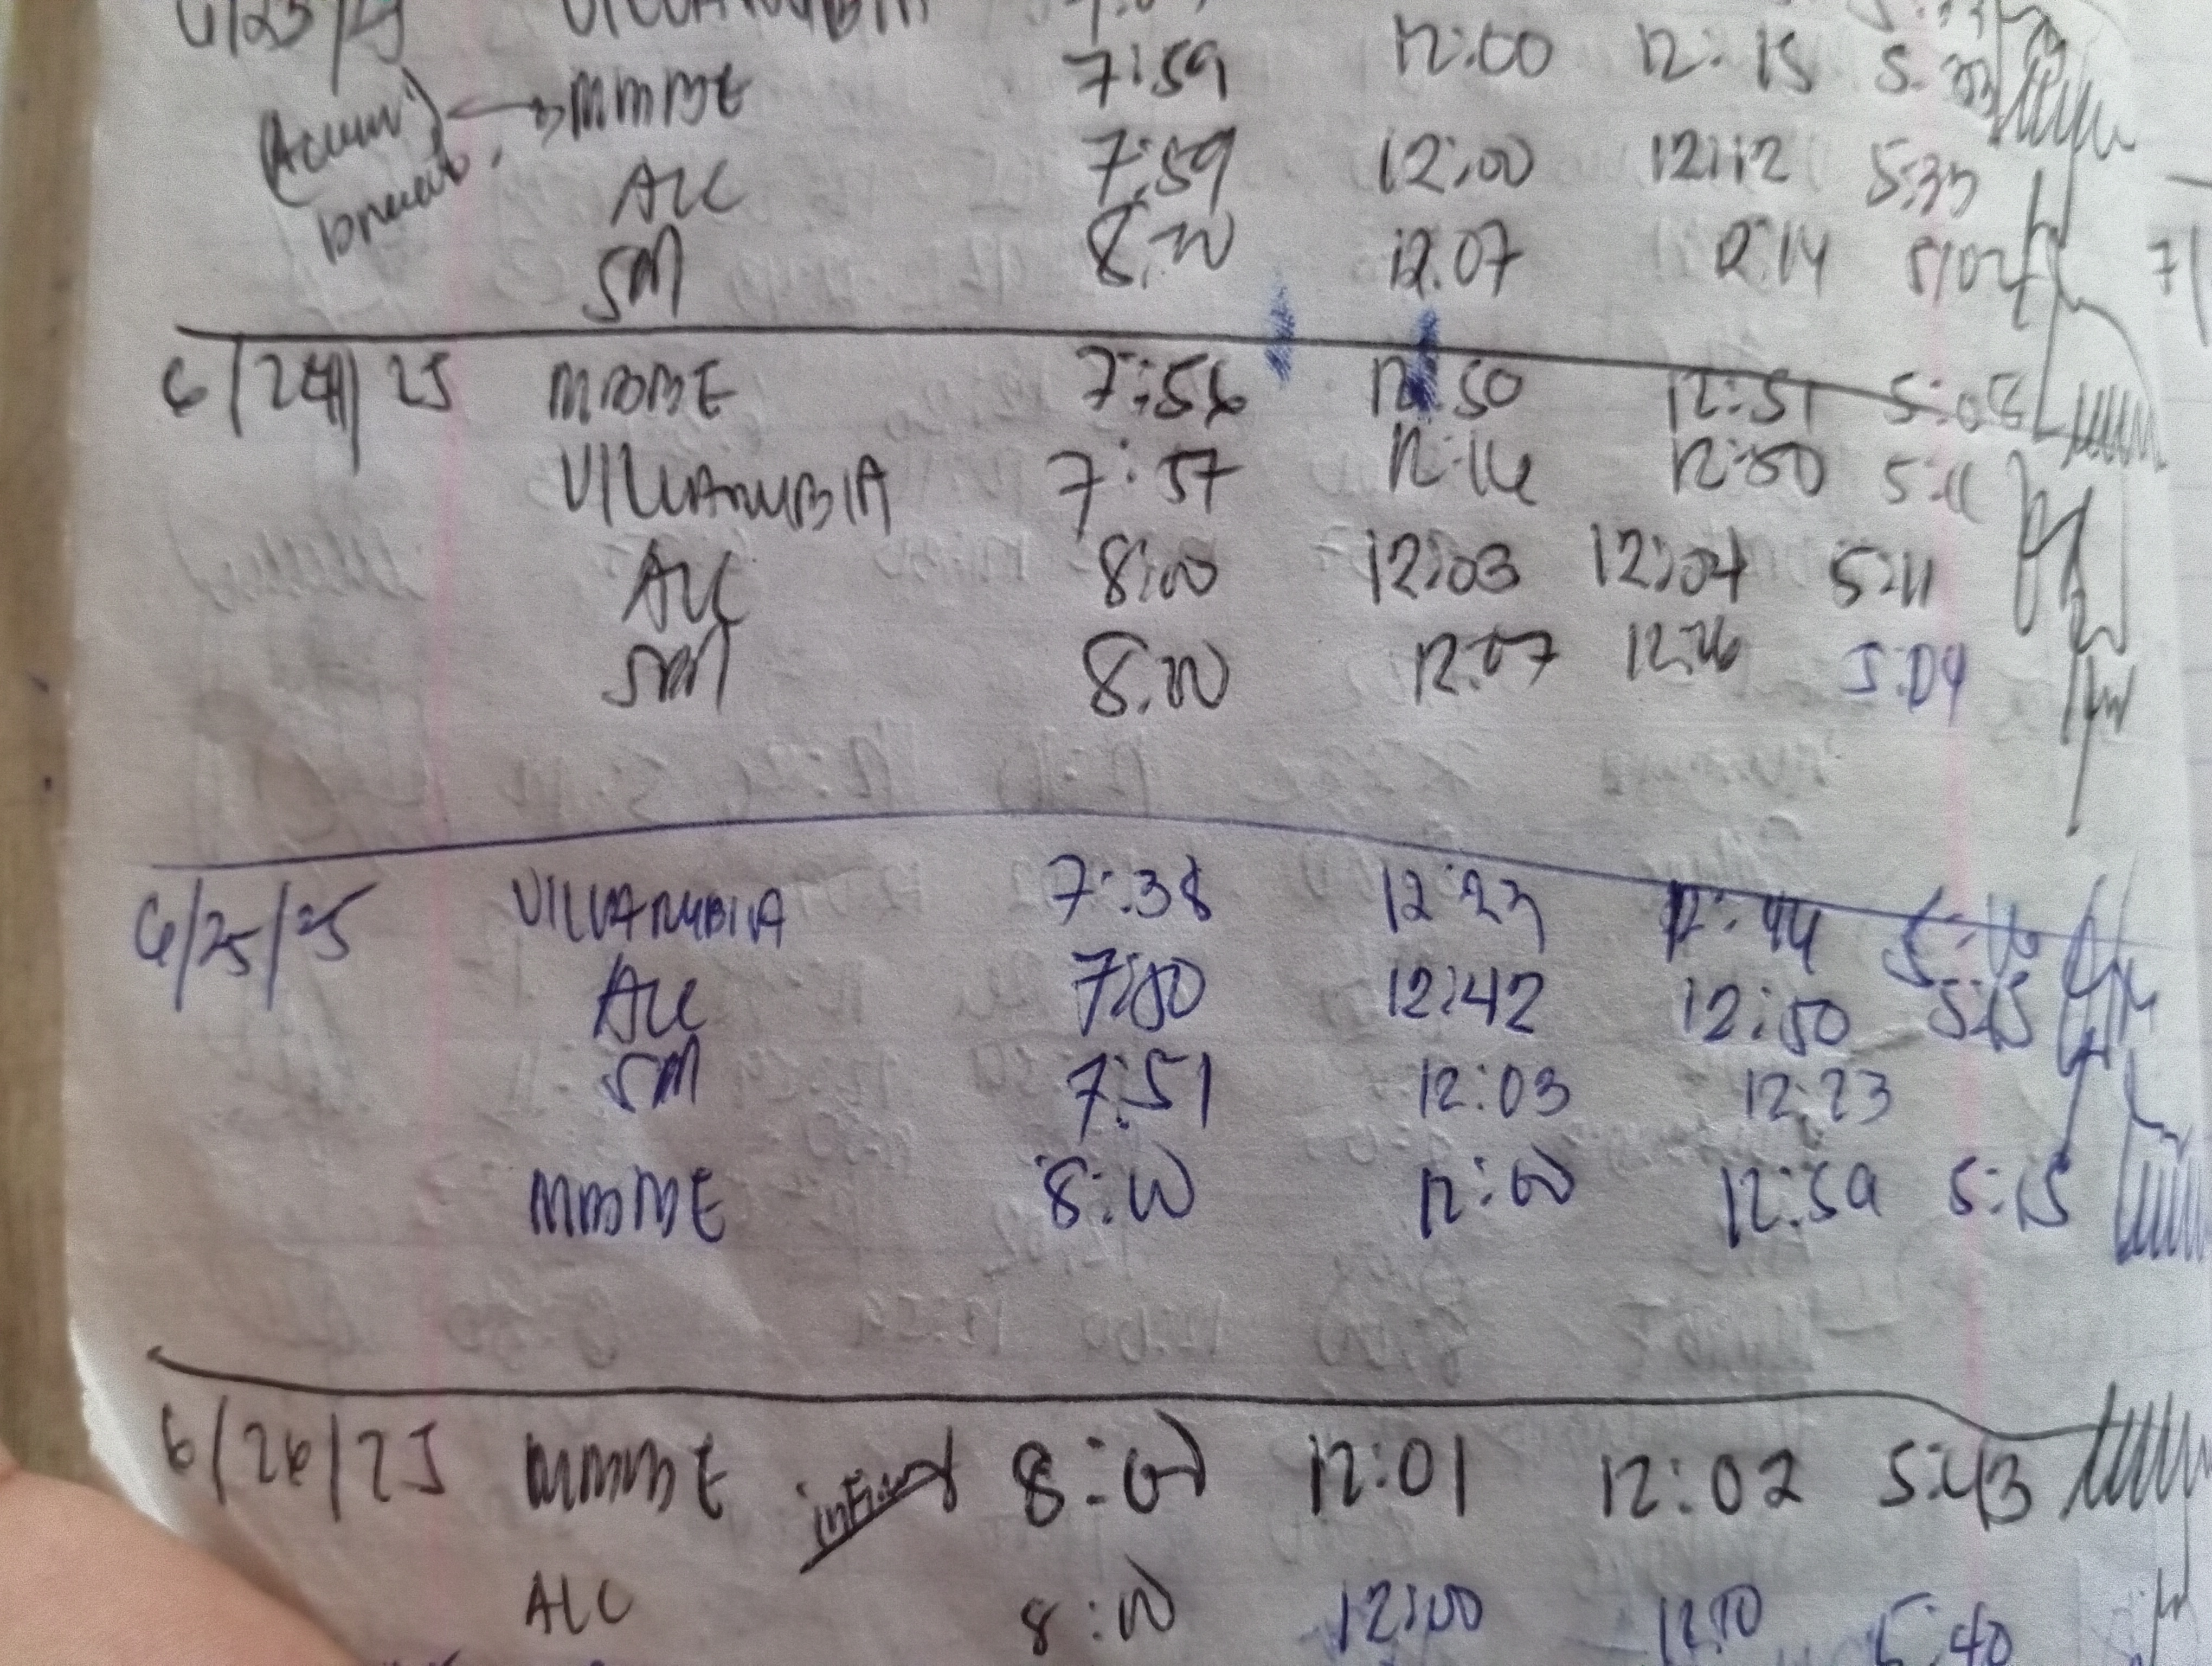 6/23/25 VILLANUBIA
MMBE 7:59 12:00 12:15
ALC 7:59 12:00 12:12 5:33
SM 8:00 12:07 12:14 5:02
6/24/25 MMBE 7:56 12:50 12:51 5:05
VILLANUBIA 7:57 12:16 12:50 5:11
ALC 8:00 12:03 12:04 5:11
SM 8:00 12:07 12:26 5:04
6/25/25 VILLANUBIA 7:38 12:23 12:44 5:16
ALC 7:50 12:42 12:50 5:15
SM 7:51 12:03 12:23
MMBE 8:00 12:00 12:59 5:15
6/26/25 MMBE 8:00 12:01 12:02 5:43
ALC 8:00 12:00 12:10 5:40